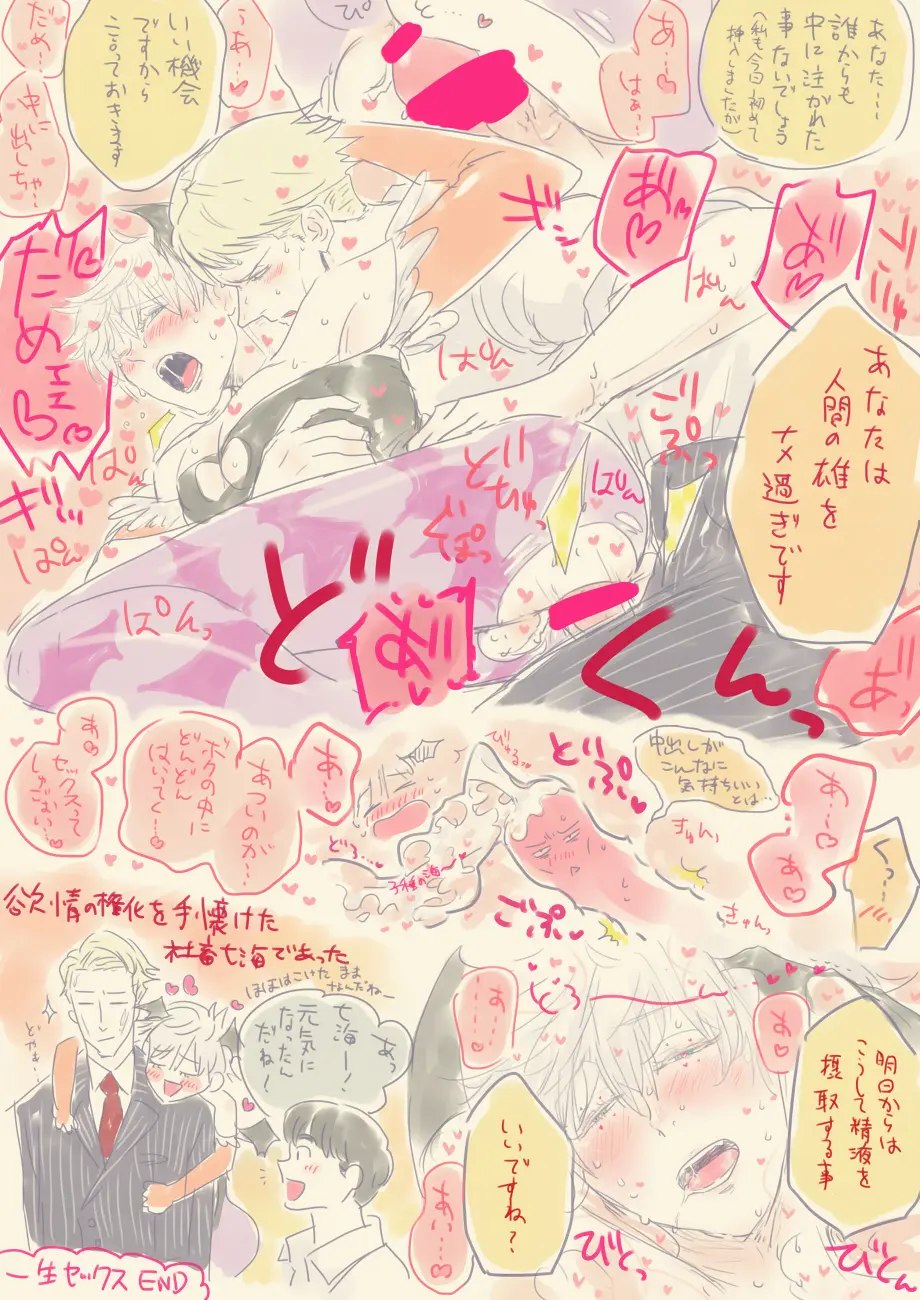 あなた……
誰からも
中に注がれた
事ないでしょう
(私も今日初めて
挿入しましたが)
あ…♡
はぁ…
と…♡
ぴ
う
あ…
いい機会
ですから
言っておきます
だめ…
中に
出しちゃ…
あ"♡
あ"♡
ギシ
だめェェ♡
ぱんっ
ぱんっ
ぱんっ
あなたは
人間の雄を
ナメ過ぎです
ごぷっ
どちゅっ
ぐぽっ
ぱんっ
ぱんっ
ぱんっ
ぱんっ
どくんっ
あ"
あ"
中出しが
こんなに
気持ちいい
とは…
どぷ♡
びゅるっ
あ…♡
あ♡
あ…♡
あついのが…
ボクの中に
どんどん
はいってく…♡
あ♡
セックスって
しゅごい…
どろ…♡
子種の海〜
ごぽ♡
きゅんっ
きゅんっ
くっ…
欲情の権化を手懐けた
社畜七海であった
ほほはこけたまま
なんだねー
あっ
七海ー!
元気に
なったん
だね!
どやぁ…
どろ
あ…♡
あ♡
明日からは
こうして精液を
摂取する事
いいですね?
あい…♡
びとっ
びとっ
一生セックス END